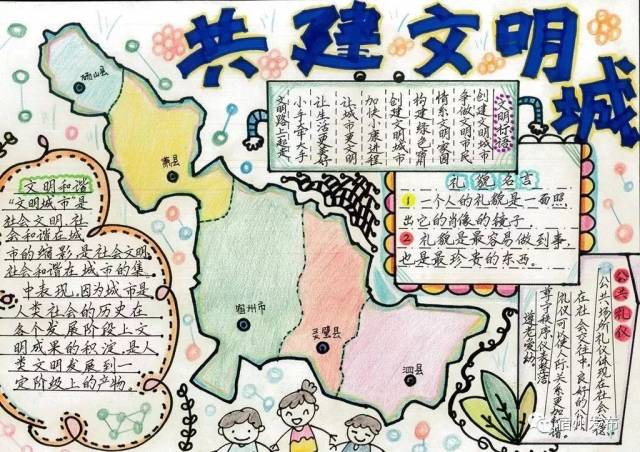 共建文明城
砀山县
萧县
宿州市
灵璧县
泗县
文明标语
创建文明城市
争做文明市民
情系文明家园
构建绿色
创建文明城市
加快小康进程
让城市更文明
让生活更美好
小手牵大手
文明路上起走
礼貌名言
1 一个人的礼貌是一面照
出它的肖像的镜子
2 礼貌是最容易做到事,
也是最珍贵的东西。
文明和谐
“文明城市”是
社会文明,社
会和谐在城
市的缩影,是社会文明,
社会和谐在城市的集
中表现,因为城市是
人类社会的历史在
各个发展阶段上文
明成果的积淀,是人
类文明发展到一
定阶级上的产物。
公共礼仪
公共场所礼仪体现在社会公德
在社会交往中,良好的公共
礼仪可以使人际关系更加和谐
尊了秩序仪表整洁
遵老爱幼。
宿州发布